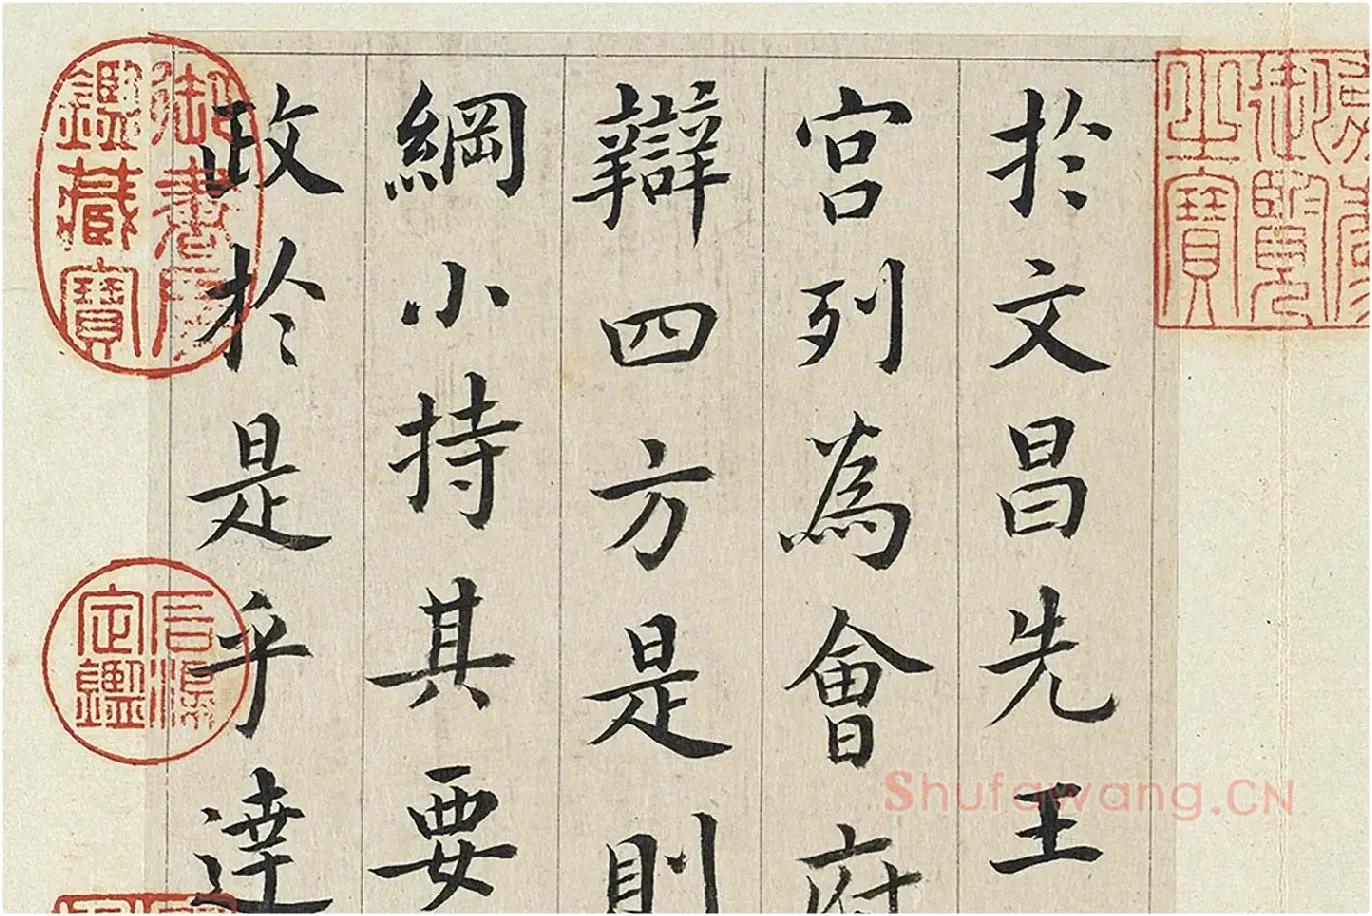 於文昌先王
宮列為會府
辯四方是則
綱小持其要
政於是乎達
御書房鑑藏寶
石渠定鑑
御覽之寶
Shufawang.CN